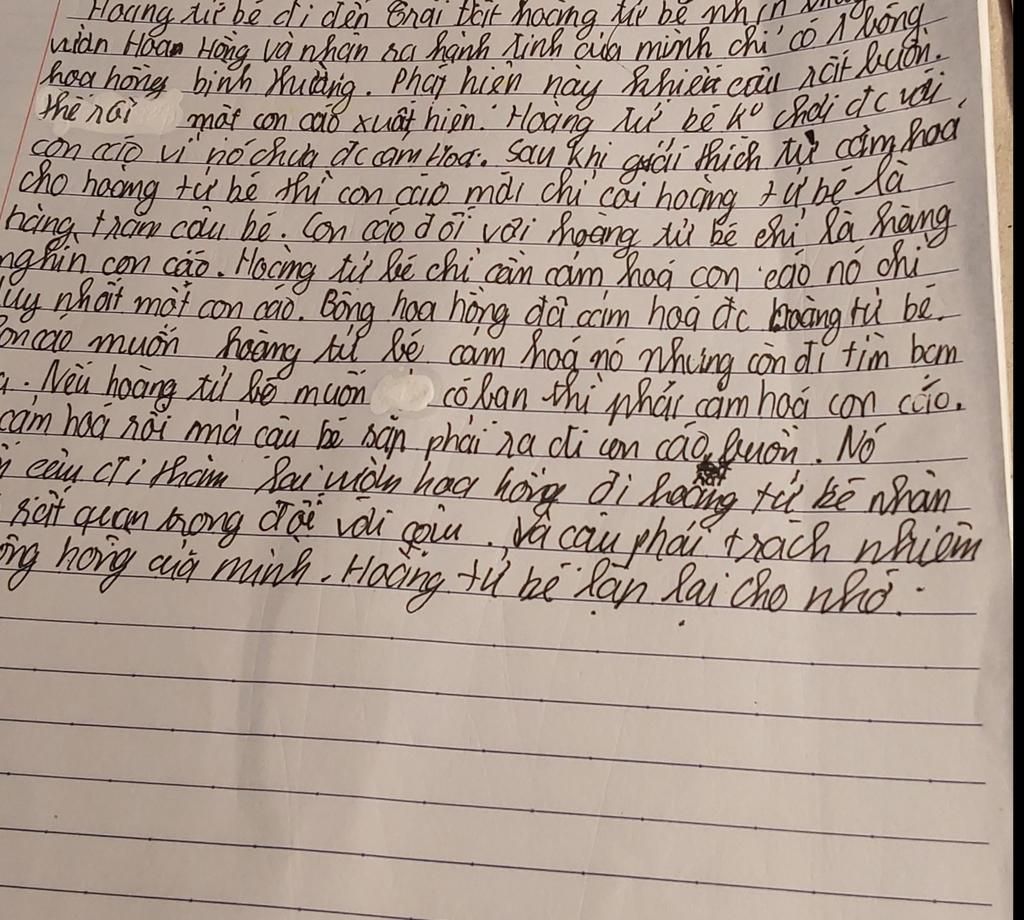 Hoàng tử bé đi đến trái đất hoàng tử bé nhìn
vườn Hoa Hồng và nhận ra hành tinh của mình chỉ có 1 bông
hoa hồng bình thường. Phát hiện này khiến cậu rất buồn.
thế rồi một con cáo xuất hiện. Hoàng tử bé k° chơi đc với
con cáo vì nó chưa đc cảm Hoá. Sau khi giải thích từ cảm hoá
cho hoàng tử bé thì con cáo mới chỉ coi hoàng tử bé là
hàng trăm cậu bé. Con cáo đối với hoàng tử bé chỉ là hàng
nghìn con cáo. Hoàng tử bé chỉ cần cảm hoá con cáo nó chỉ
duy nhất một con cáo. Bông hoa hồng đã cảm hoá đc hoàng tử bé.
con cáo muốn hoàng tử bé cảm hoá nó nhưng còn đi tìm bạn
. Nếu hoàng tử bé muốn có bạn thì phải cảm hoá con cáo.
cảm hoá rồi mà cậu bé sắp phải ra đi con cáo buồn. Nó
cậu đi thăm lại vườn hoa hồng đi hoàng tử bé nhận
rất quan trọng đối với cậu. Và cậu phải trách nhiệm
hồng của mình. Hoàng tử bé lặp lại cho nhớ.